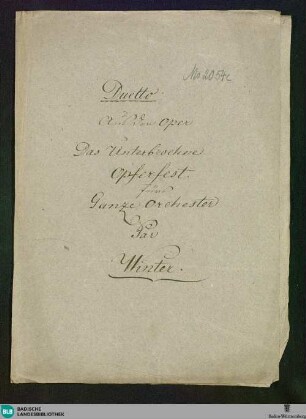 Duetto
Aus der Oper
Das Unterbrochne
Opferfest.
fürs
Ganze Orchester
Par
Winter.
BLB
BADISCHE
LANDESBIBLIOTHEK
Baden-Württemberg